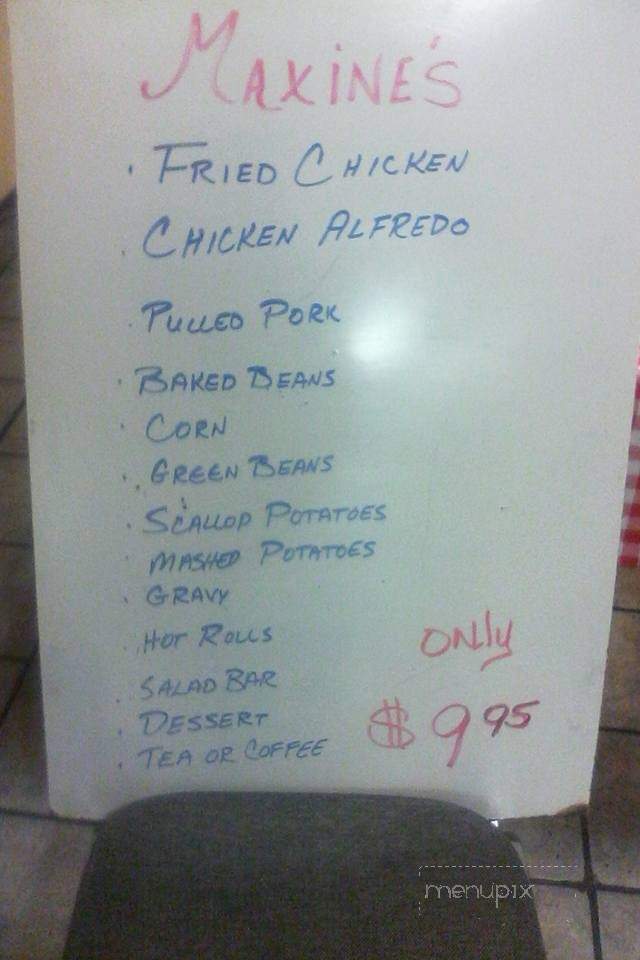 MAXINE'S
· FRIED CHICKEN
· CHICKEN ALFREDO
· PULLED PORK
· BAKED BEANS
· CORN
· GREEN BEANS
· SCALLOP POTATOES
· MASHED POTATOES
· GRAVY
· HOT ROLLS
· SALAD BAR
· DESSERT
· TEA OR COFFEE
ONLY
$9.95
menupix